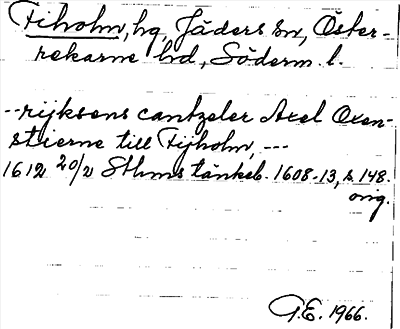 Fiholm, hg, Jäders sn, Öster-
rekarne hd, Söderm. l.
--rijksens cantzeler Axel Oxen-
stierne till Fijholm, ---
1612 20/2 Sthms tänkeb. 1608-13, s. 148.
orig.
G.E. 1966.